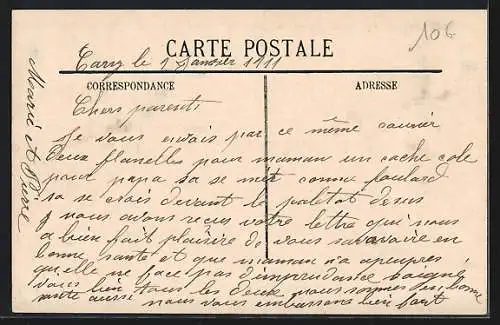 106
CARTE POSTALE
le 1 Janvier 1911
CORRESPONDANCE
ADRESSE
Chers parents
Je vous envais par ce même courrier
deux flanelles pour maman un cache cole
pour papa sa se met comme foulard
sa se crais devant le paletot desus
nous avons recus votre lettre qui nous
a bien fait plaisire de vous savavaire en
bonne santé et que maman n'a
qu'elle ne face pas d'imprudance soigné
vous bien tous les deux nous sommes en bonne
santé aussi nous vous embrassons bien fort
Marie et Pierre